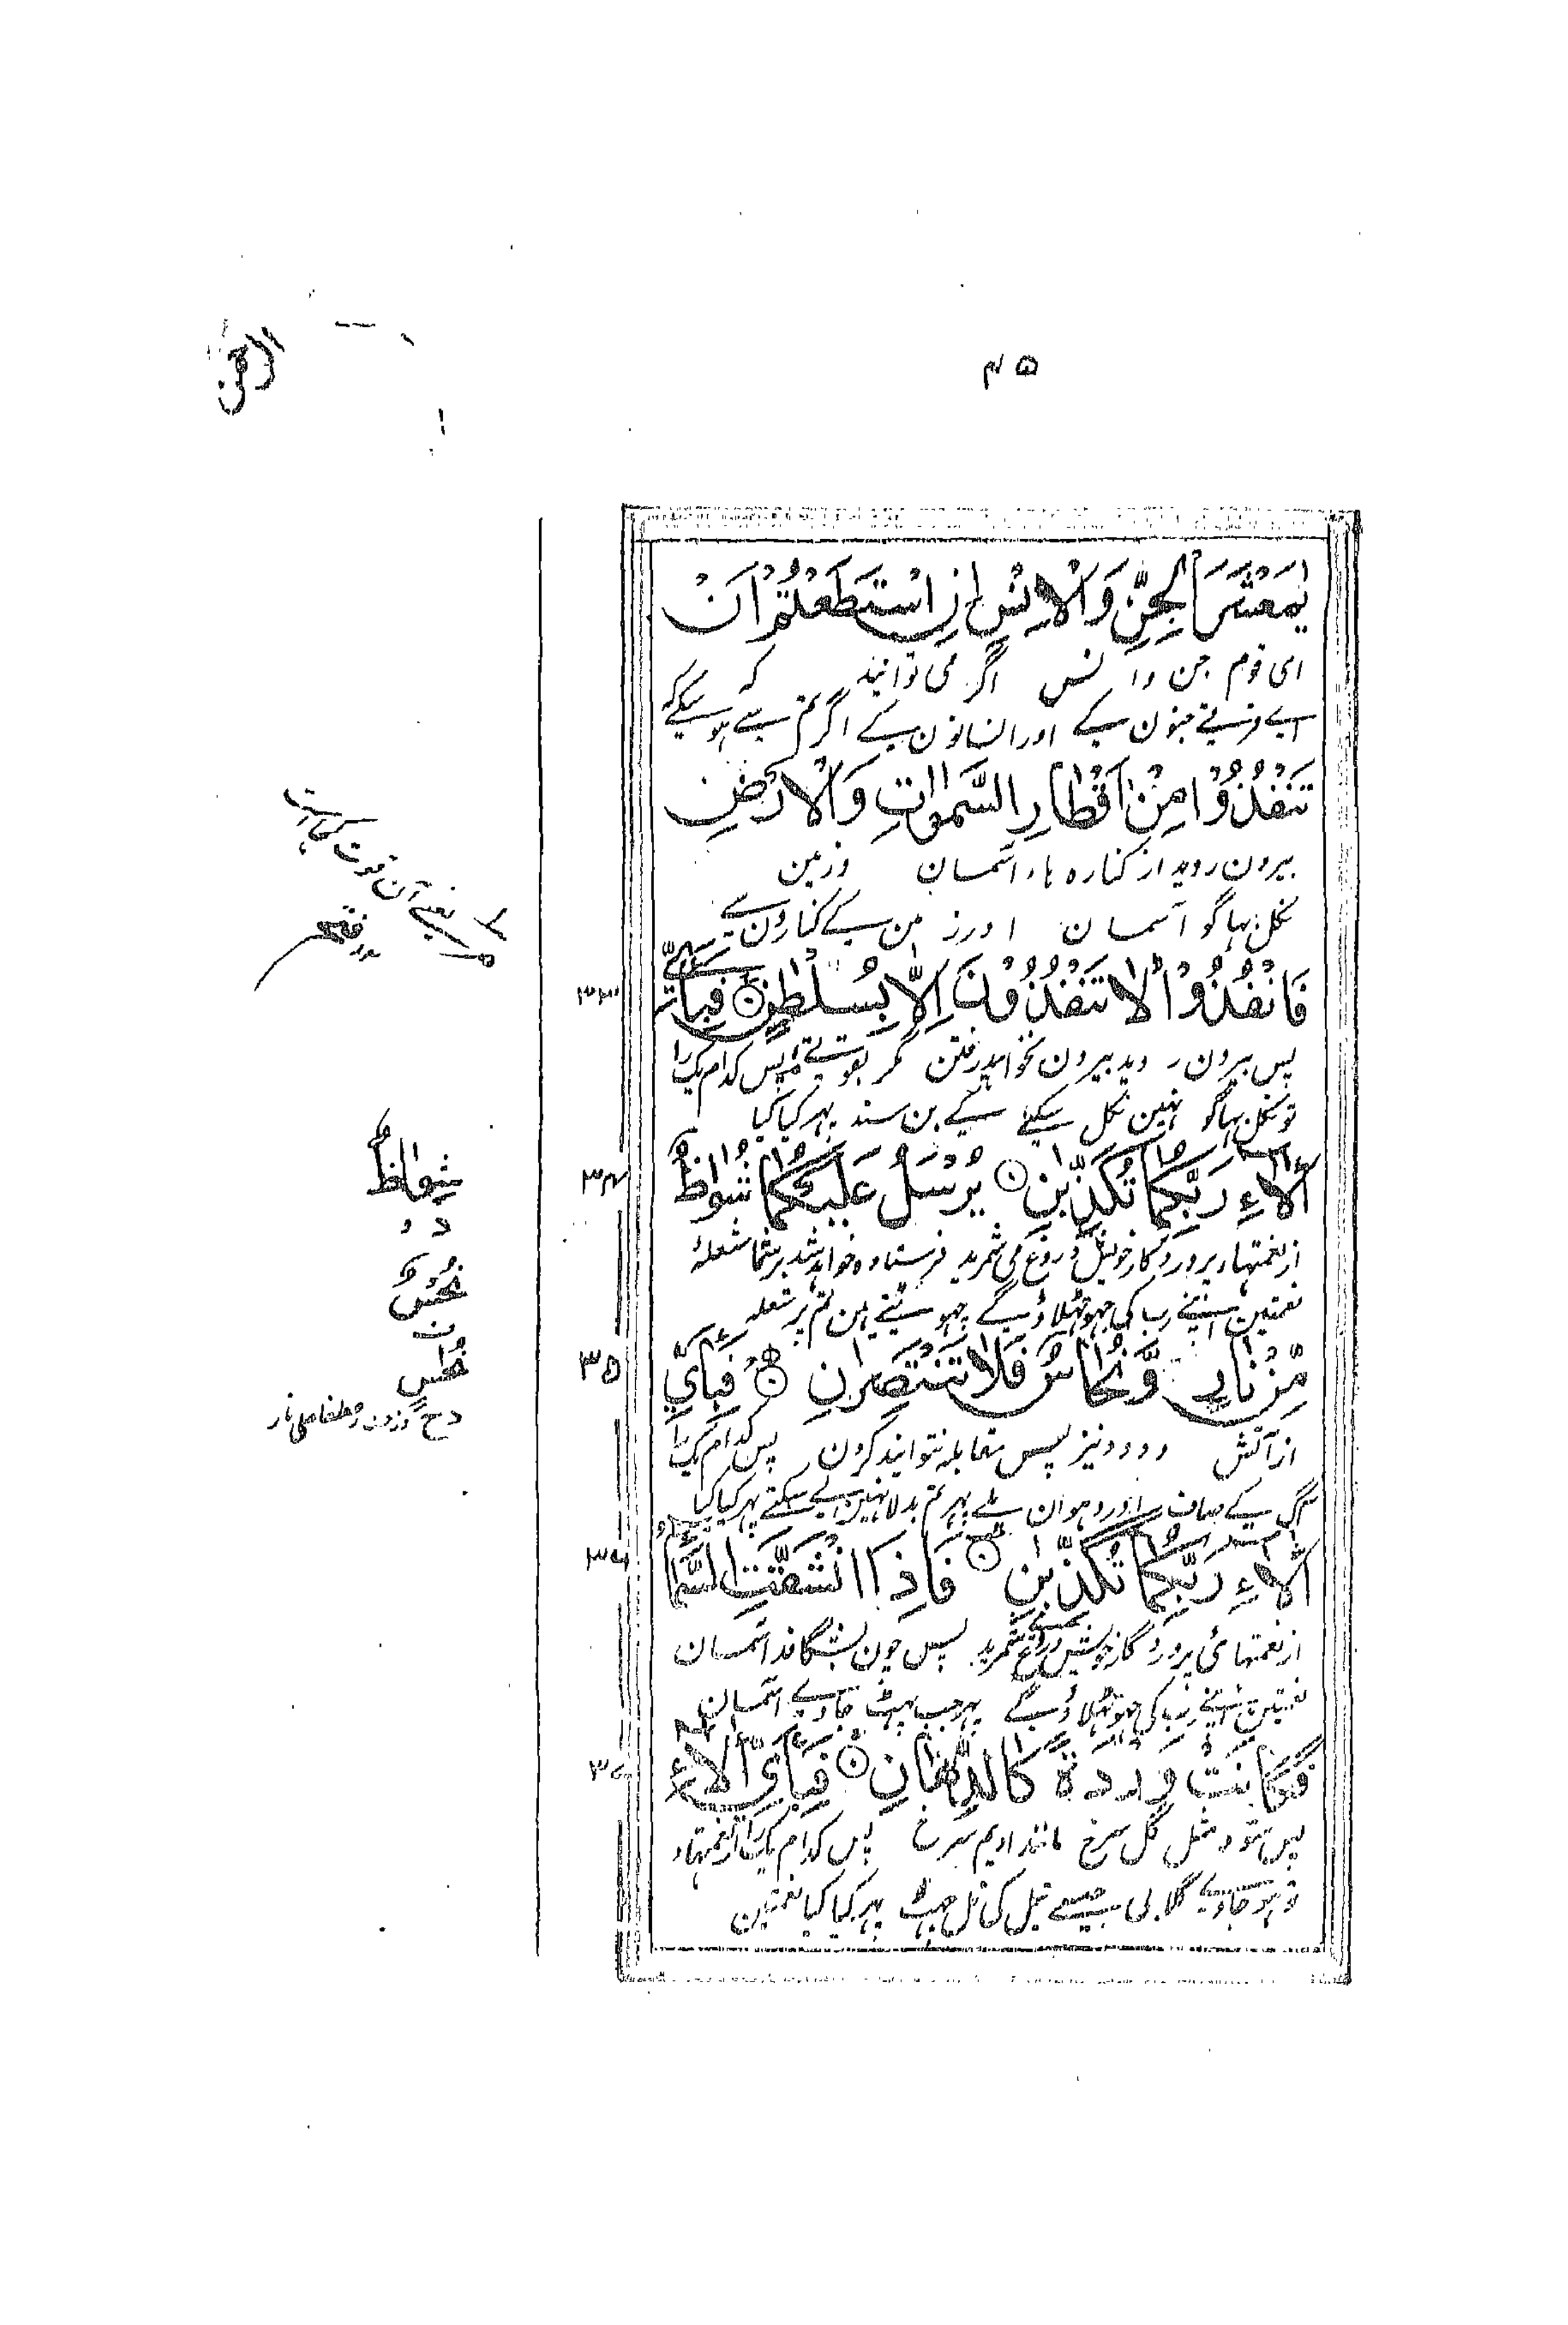 الرحمن
۴۵
يٰمَعْشَرَ الْجِنِّ وَالْاِنْسِ اِنِ اسْتَطَعْتُمْ اَنْ
ای قوم جن و انس اگر می توانید که
اے فرقے جنون کے اور انسانون کے اگر تم سے ہو سکے کہ
تَنْفُذُوْا مِنْ اَقْطَارِ السَّمٰوٰتِ وَالْاَرْضِ
بیرون روید از کنارہ ہاء آسمان و زمین
نکل بہاگو آسمان اور زمین کے کنارون سے
فَانْفُذُوْا لَا تَنْفُذُوْنَ اِلَّا بِسُلْطٰنٍ ۝ فَبِاَيِّ
۳۳
پس بیرون روید بیرون نخواہید رفتن مگر بقوتے پس کدام یک را
تو نکل بہاگو نہین نکل سکتے کے بن سند پہر کیا کیا
اٰلَاۤءِ رَبِّكُمَا تُكَذِّبٰنِ ۝ يُرْسَلُ عَلَيْكُمَا شُوَاظٌ
۳۴
از نعمتہاء پروردگار خویش دروغ می شمرید فرستادہ خواہد شد بر شما شعلۂ
نعمتین اپنے رب کی جہوٹھلاؤ گے چہوٹتے ہین تم پر شعلہ
مِّنْ نَّارٍ وَّنُحَاسٌ فَلَا تَنْتَصِرٰنِ ۝ فَبِاَيِّ
۳۵
از آتش و دود نیز پس مقابلہ نتوانید کردن پس کدام یک را
آگ کے صاف اور دہوان ملے پہر تم بدلا نہین لے سکتے پہر کیا کیا
اٰلَاۤءِ رَبِّكُمَا تُكَذِّبٰنِ ۝ فَاِذَا انْشَقَّتِ السَّمَاۤءُ
۳۶
از نعمتہائی پروردگار خویش دروغ می شمرید پس چون بشگافد آسمان
نعمتین اپنے رب کی جہوٹھلاؤ گے پہر جب پہٹ جاوے آسمان
فَكَانَتْ وَرْدَةً كَالدِّهَانِ ۝ فَبِاَيِّ اٰلَاۤءِ
۳۷
پس شود مثل گل سرخ مانند ادیم سرخ پس کدام یک را از نعمتہاء
تو ہو جاوے گلابی جیسے تیل کی تل چہٹ پہر کیا کیا نعمتین
یعنے آن قوت
شِوَاظٌ
د
نُحُسٌ